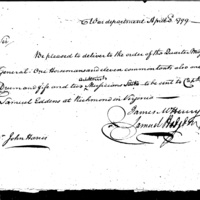 War department April 3d 1799
Sir
Be pleased to deliver to the order of the Quarter Mas
General One Hundred and eleven common tents also one
Drum and fife and two Musicians to be sent to Capt
Samuel Eddens at Richmond in Virginia
James McHenry
Samuel Hodgdon
John Harris